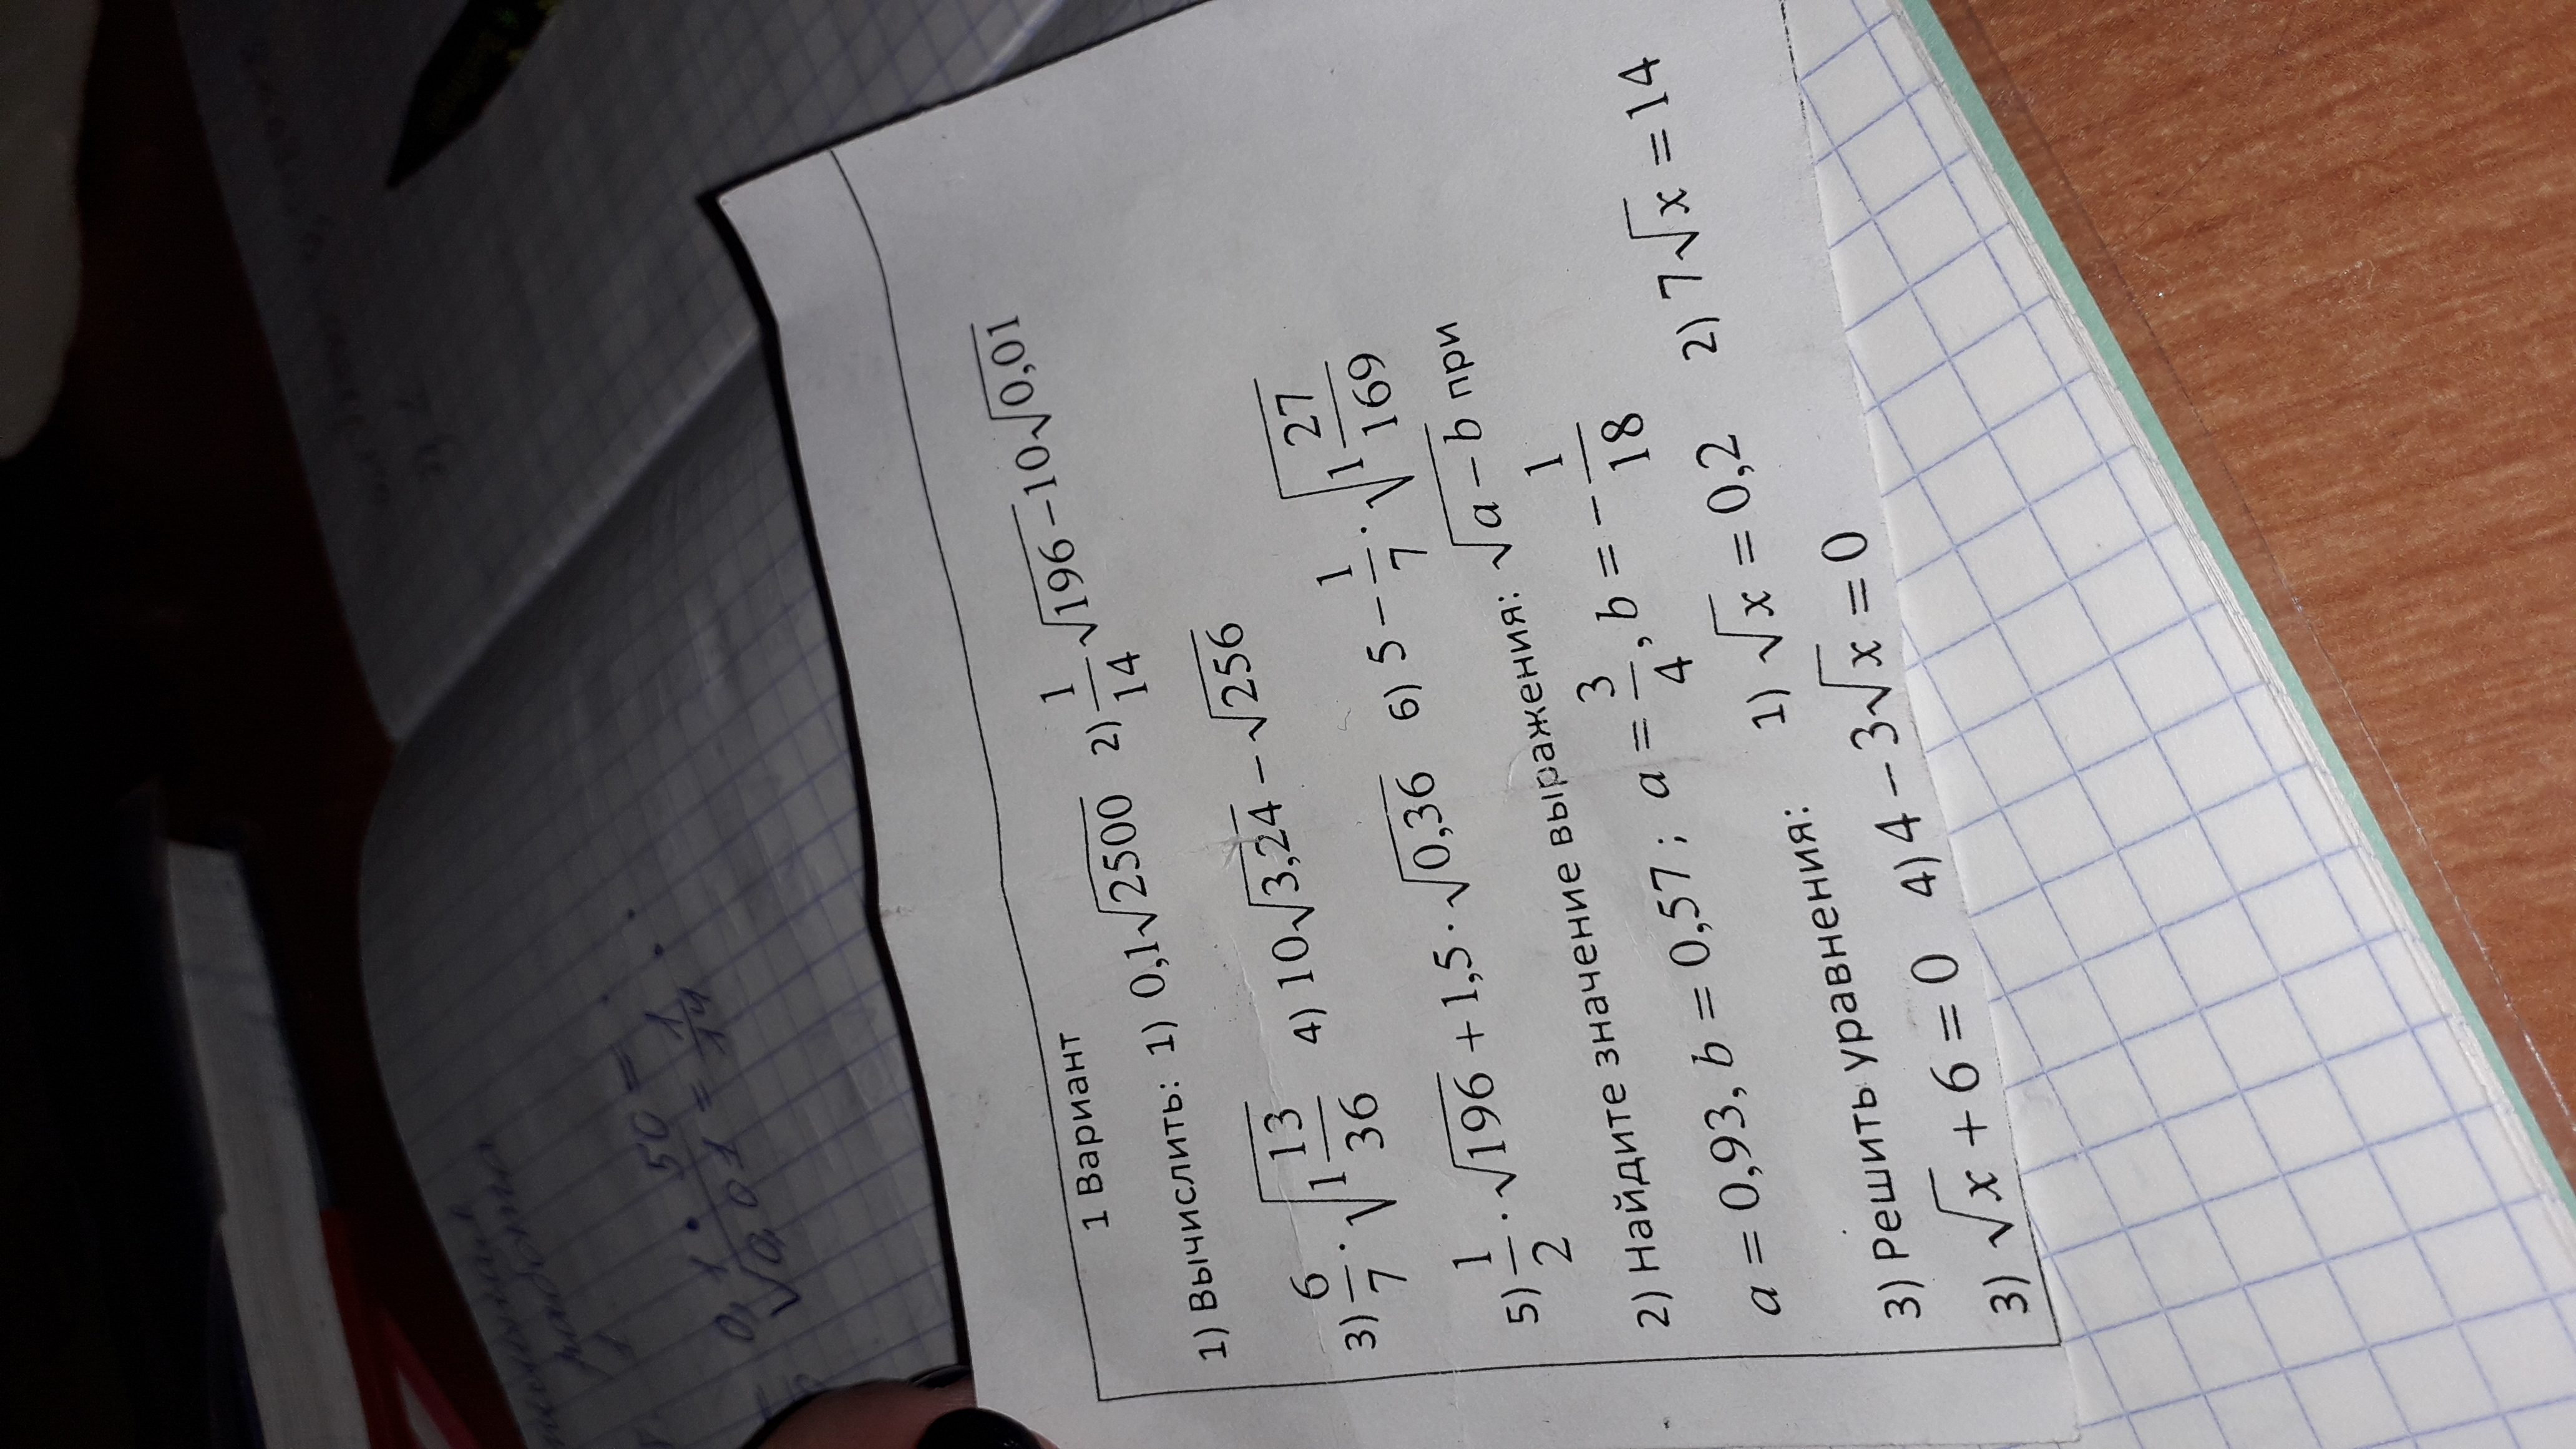 1 Вариант
1) Вычислить: 1) 0,1√2500 2) 1/14 √196 -10√0,01
3) 6/7 · √(1 13/36) 4) 10√3,24 - √256
5) 1/2 · √196 + 1,5 · √0,36 6) 5 - 1/7 · √(1 27/169)
2) Найдите значение выражения: √(a - b) при
a = 0,93, b = 0,57 ; a = 3/4, b = - 1/18
3) Решить уравнения: 1) √x = 0,2 2) 7√x = 14
3) √x + 6 = 0 4) 4 - 3√x = 0
50 =
√0,01 = 1/14